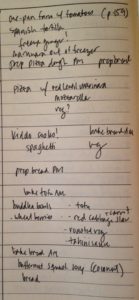 one-pan farro w/ tomatoes (p. 253)
spanish tortilla
freeze
marinara out of freezer
prep pizza dough AM prep bread
pizza w/ red lentil marinara
mozzarella
veg?
bake bread AM
spaghetti veg
prep bread PM
bake tofu AM
buddha bowls - tofu
- wheat berries - red cabbage slaw + carrot
- roasted veg
- tahini sauce
bake bread AM
butternut squash soup (coconut)
bread